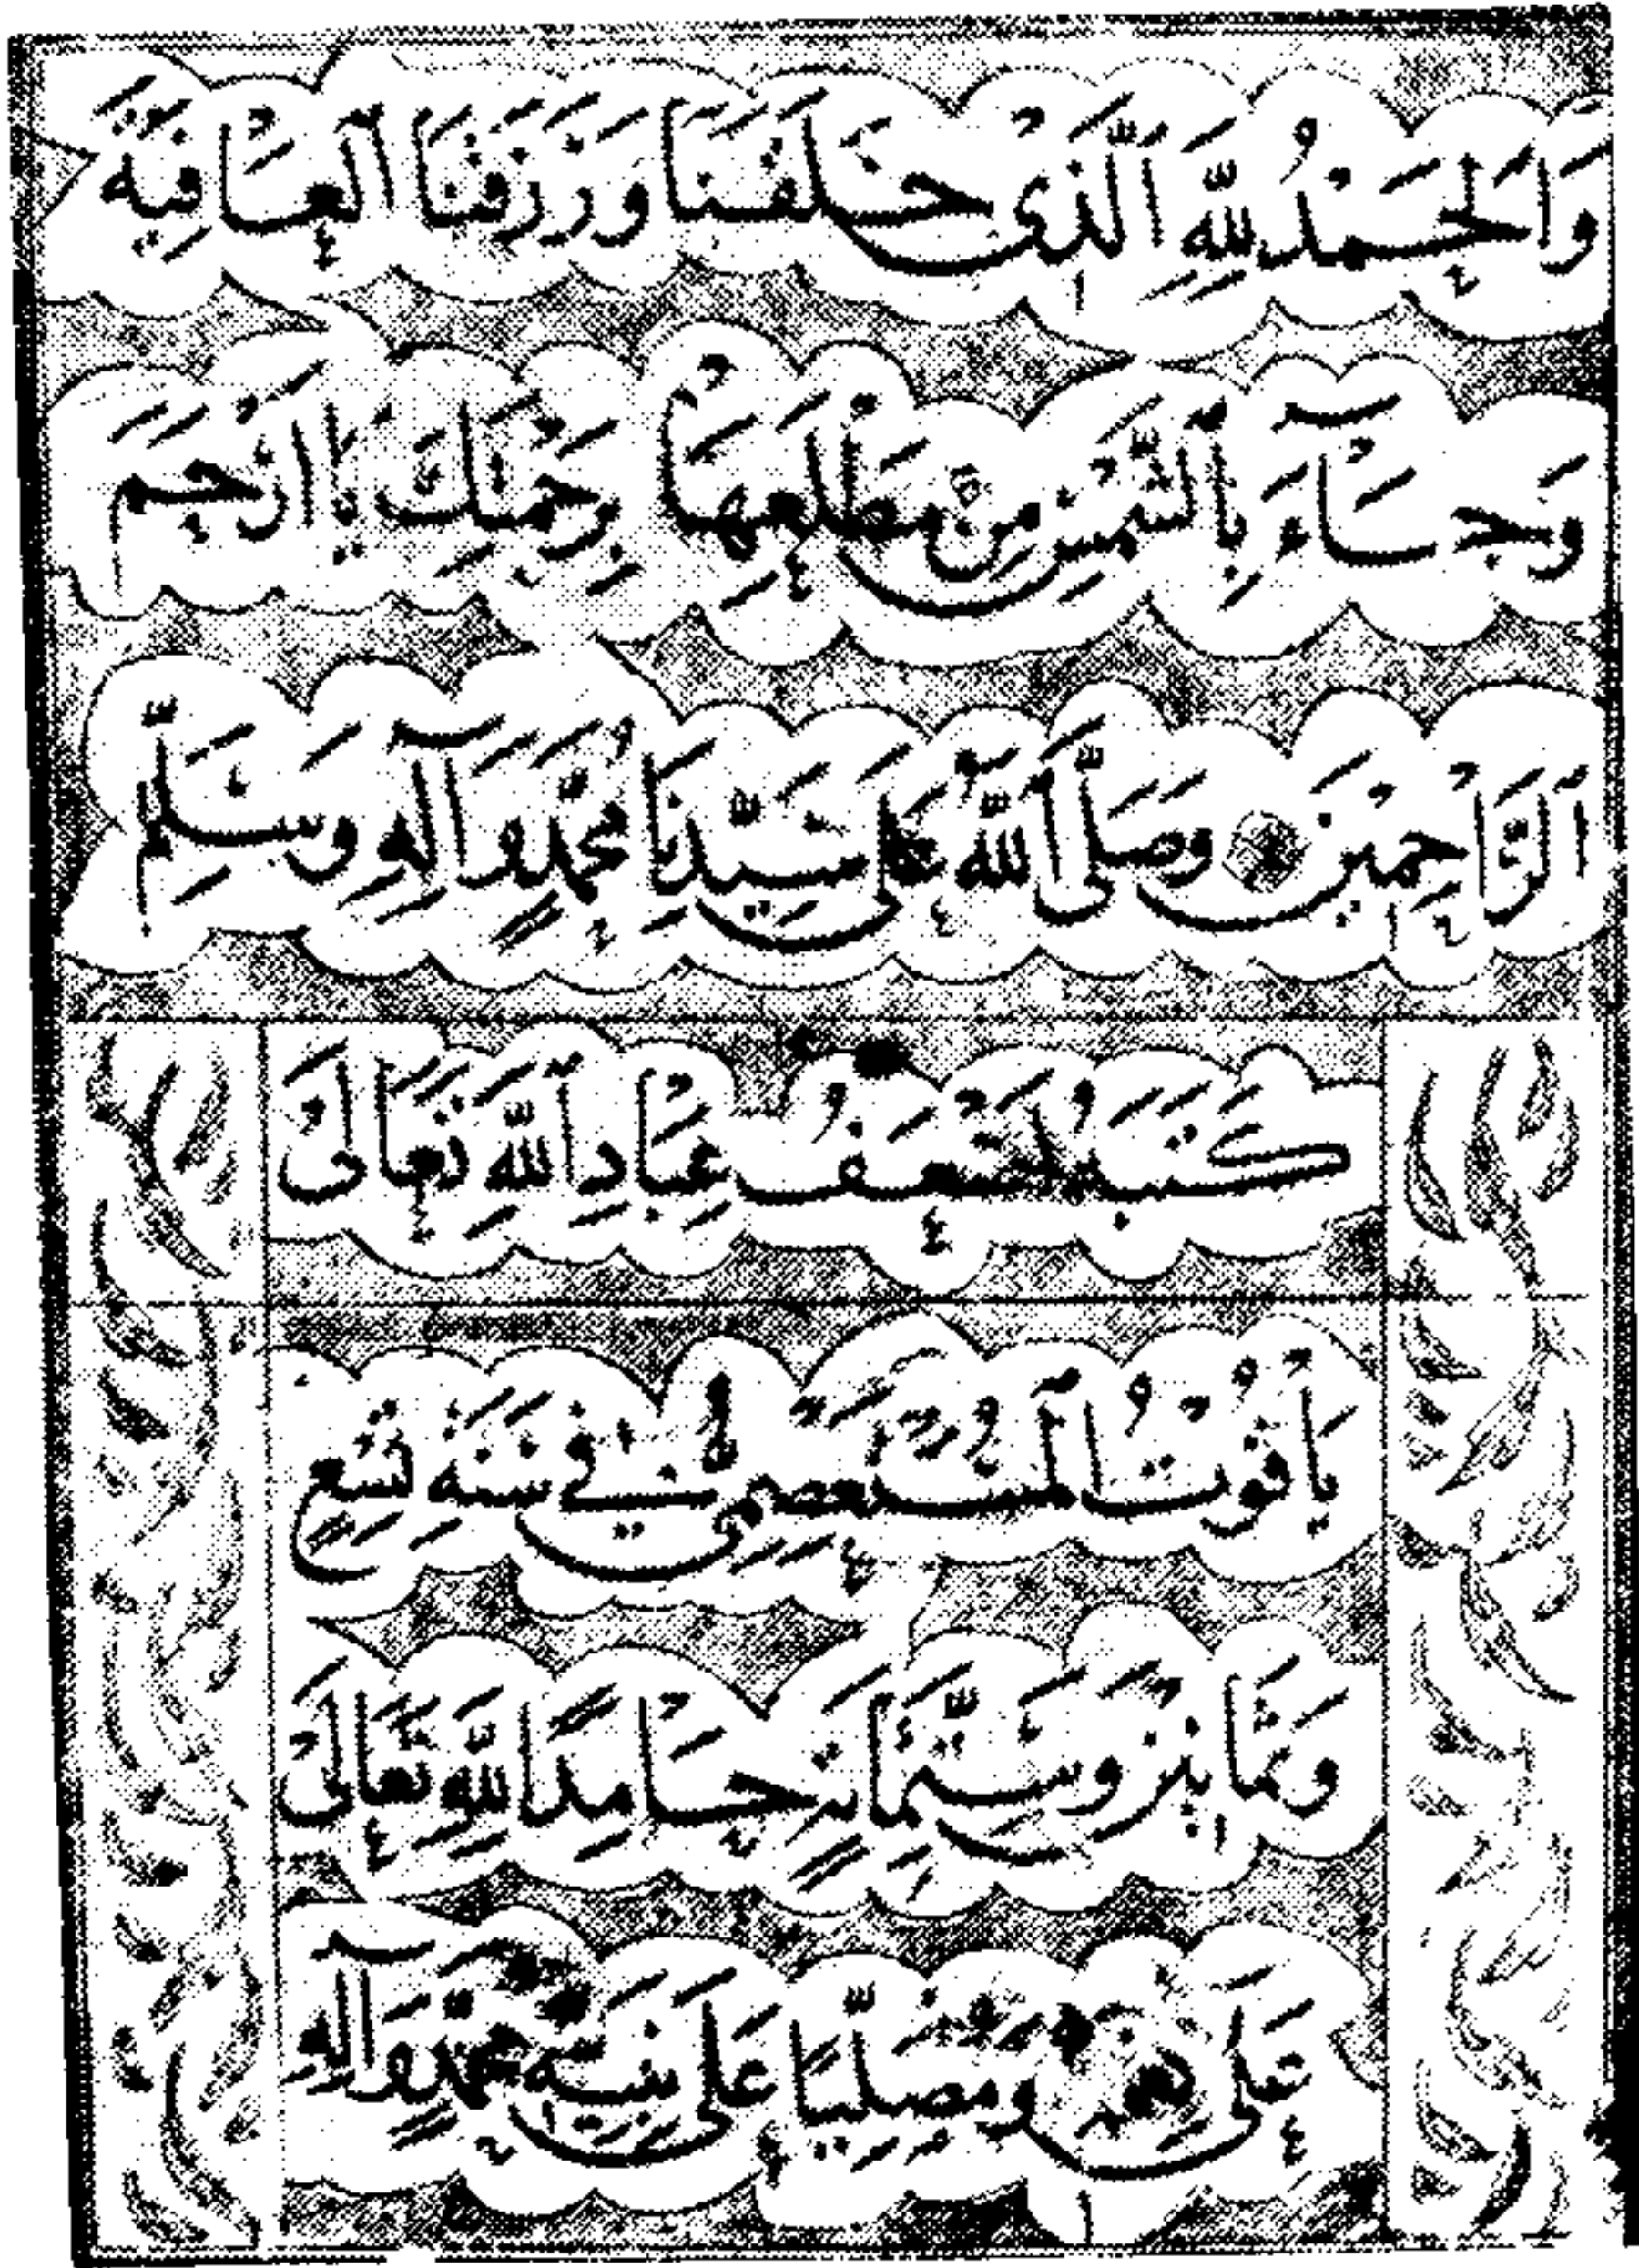 وَالْحَمْدُ لِلَّهِ الَّذِي خَلَقَنَا وَرَزَقَنَا الْعَافِيَةَ
وَجَاءَ بِالشَّمْسِ مِنْ مَطْلَعِهَا بِرَحْمَتِكَ يَا أَرْحَمَ
الرَّاحِمِينَ وَصَلَّى اللَّهُ عَلَى سَيِّدِنَا مُحَمَّدٍ وَآلِهِ وَسَلِّمْ
كَتَبَهُ أَضْعَفُ عِبَادِ اللَّهِ تَعَالَى
يَاقُوتُ الْمُسْتَعْصِمِيُّ فِي سَنَةِ تِسْعٍ
وَثَمَانِينَ وَسِتِّمِائَةٍ حَامِدًا لِلَّهِ تَعَالَى
عَلَى نِعَمِهِ وَمُصَلِّيًا عَلَى نَبِيِّهِ مُحَمَّدٍ وَآلِهِ